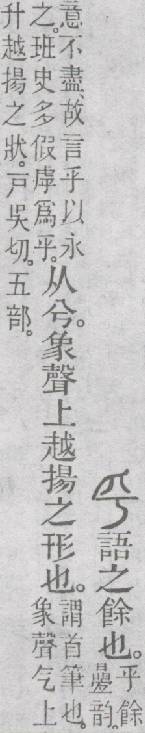 乎語之餘也。乎餘
曡韵。
意不盡故言乎以永
之。班史多假虖爲乎。
从兮。象聲上越揚之形也。謂首筆也。
象聲气上
升越揚之狀。戸吳切。五部。